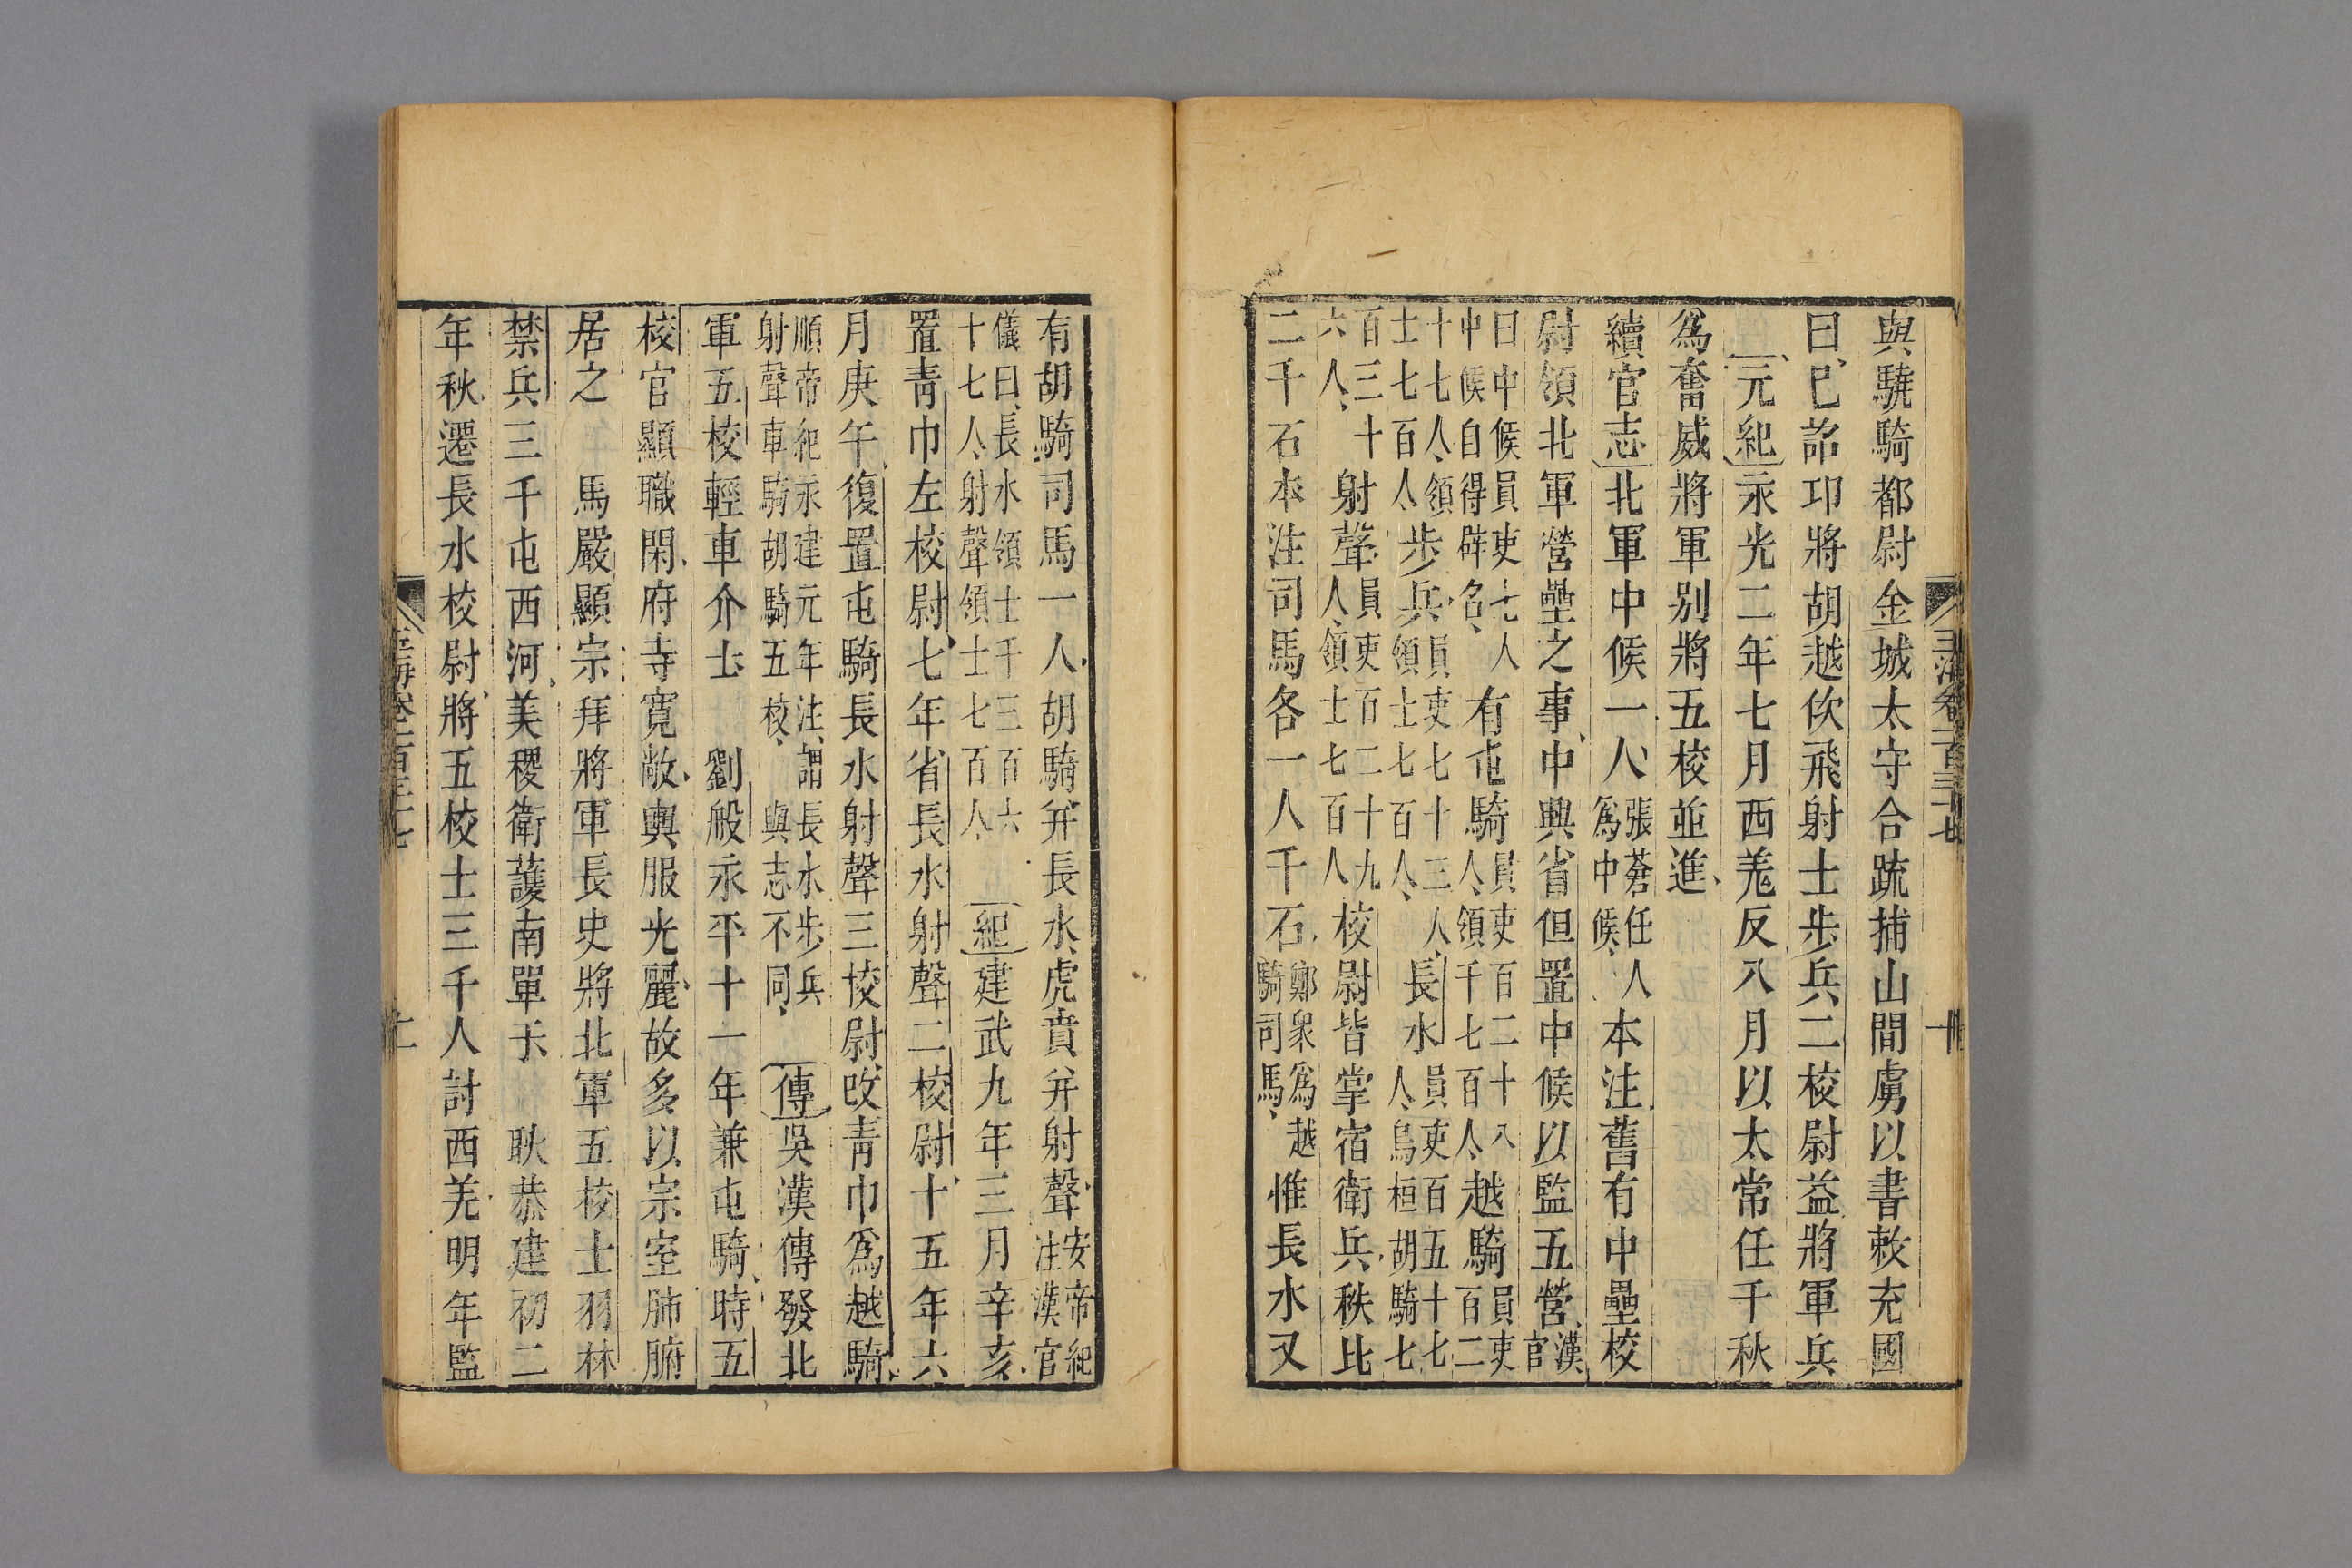 與驍騎都尉金城太守合䟽捕山間虜以書敕充國
曰已詔卭將胡越佽飛射士步兵二校尉益將軍兵
元紀永光二年七月西羌反八月以太常任千秋
爲奮威將軍别將五校並進
續官志北軍中候一人張蒼任人爲中候本注舊有中壘校
尉領北軍營壘之事中興省但置中候以監五營漢官
曰中候員吏七人中候自得辟名有屯騎員吏百二十八人領千七百人越騎員吏百二
十七人領士七百人步兵員吏七十三人領士七百人長水員吏百五十七人烏桓胡騎七
百三十六人射聲員吏百二十九人領士七百人校尉皆掌宿衛兵秩比
二千石本注司馬各一人千石鄭衆爲越騎司馬惟長水又
玉海卷一百三十七 十
有胡騎司馬一人胡騎并長水虎賁并射聲安帝紀注漢官
儀曰長水領士千三百六十七人射聲領士七百人紀建武九年三月辛亥
置青巾左校尉七年省長水射聲二校尉十五年六
月庚午復置屯騎長水射聲三校尉改青巾爲越騎
順帝紀永建元年注謂長水步兵射聲車騎胡騎五校與志不同傳吳漢傳發北
軍五校輕車介士 劉般永平十一年兼屯騎時五
校官顯職閑府寺寬敞輿服光麗故多以宗室肺腑
居之 馬嚴顯宗拜將軍長史將北軍五校士羽林
禁兵三千屯西河美稷衛護南單于 耿恭建初二
年秋遷長水校尉將五校士三千人討西羌明年監